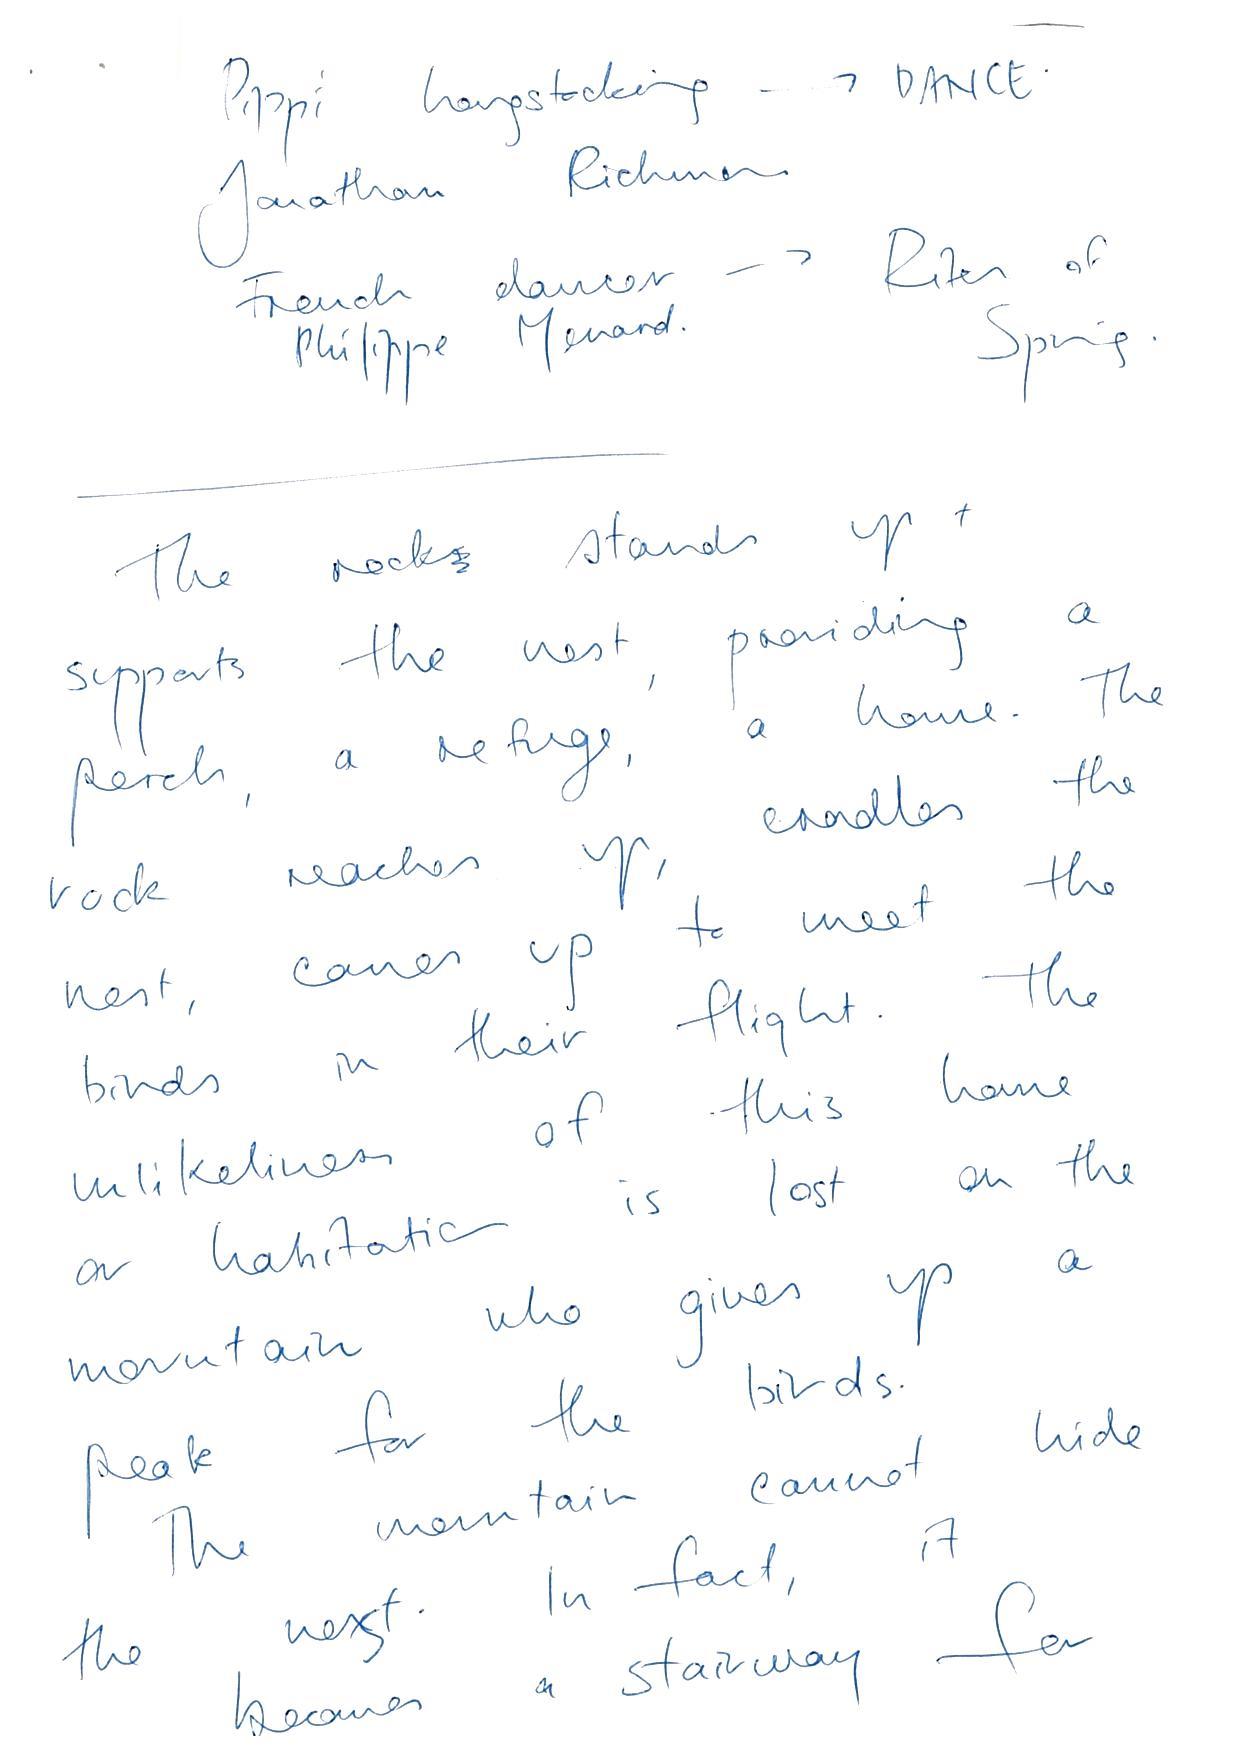 Pippi Longstocking --→ DANCE.
Jonathan Richman
French dancer --→ Rites of
Philippe Menard. Spring.
The rock stands up +
supports the nest, providing a
perch, a refuge, a home. The
rock reaches up, cradles the
nest, comes up to meet the
birds in their flight. The
unlikeliness of this home
or habitation is lost on the
mountain who gives up a
peak for the birds.
The mountain cannot hide
the nest. In fact, it
becomes a stairway for